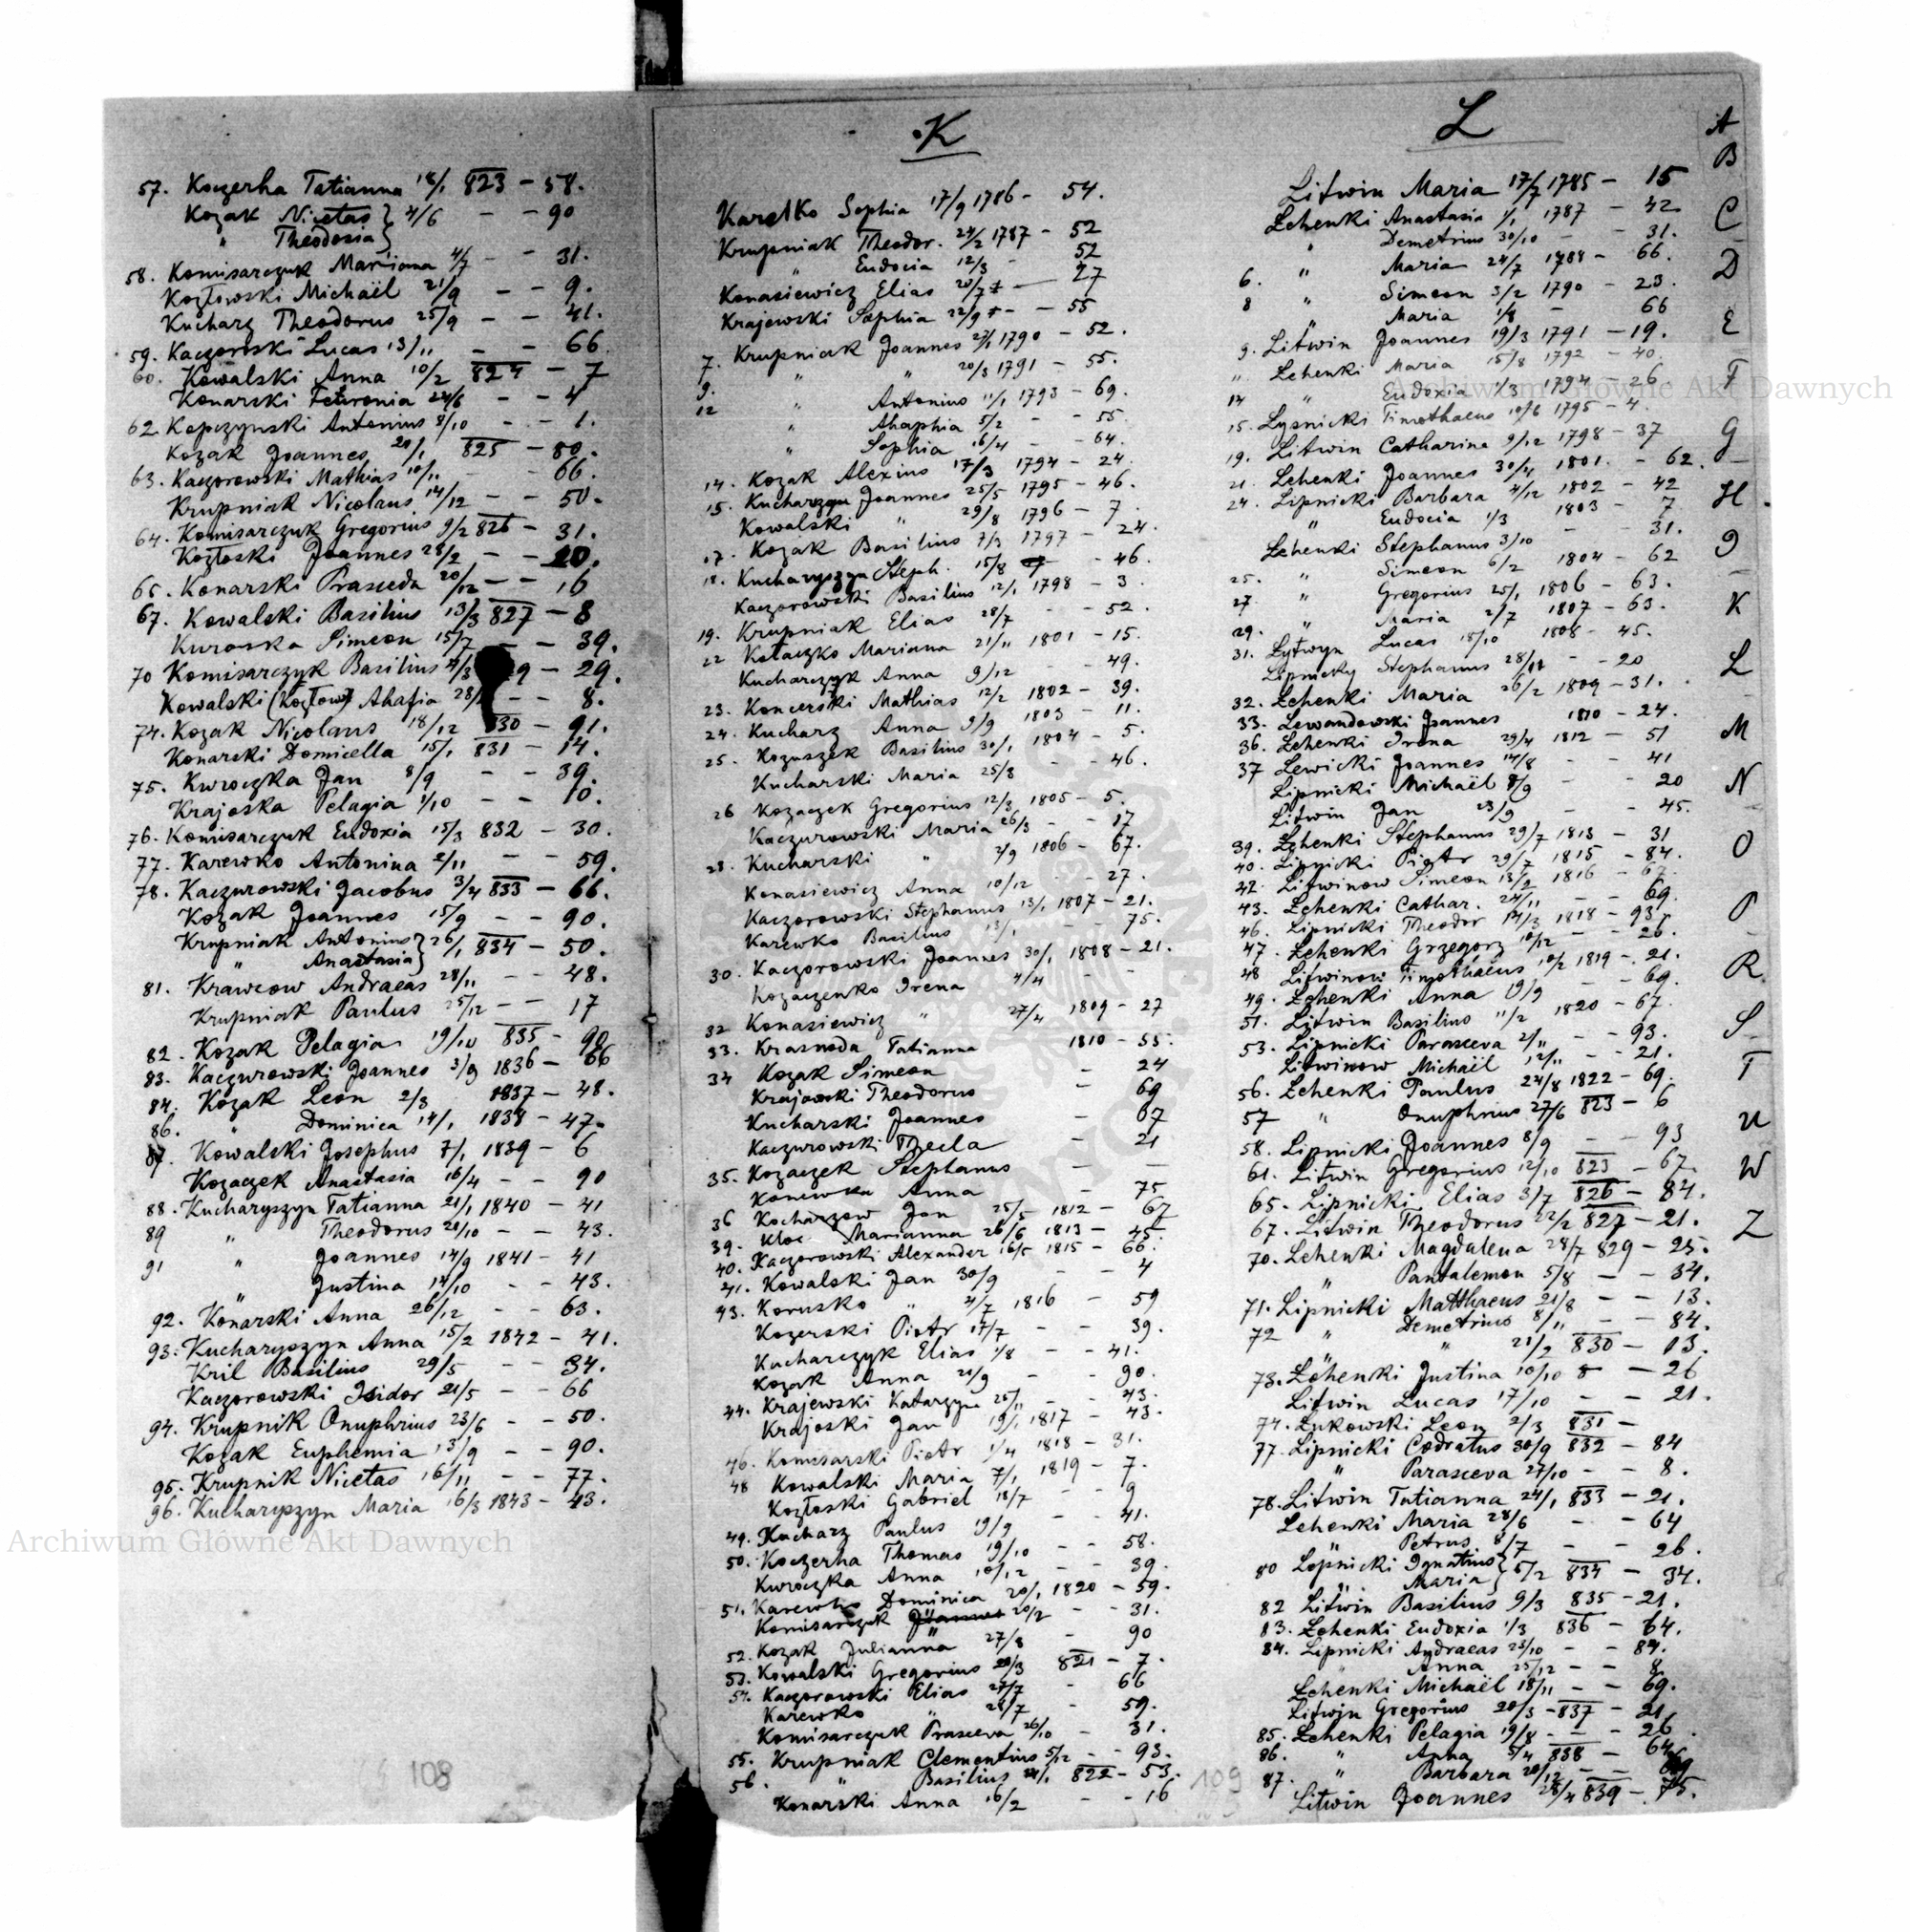 57. Koczerha Tatianna 18/1 823 - 58.
Kozak Nicetas } 4/6 - - 90
" Theodosia }
58. Komisarczuk Marianna 4/7 - - 31.
Kozłowski Michaël 21/9 - - 9.
Kucharz Theodorus 25/9 - - 41.
59. Kaczorowski Lucas 13/11 - - 66.
60. Kowalski Anna 10/2 824 - 7
Konarski Fetronia 24/6 - - 4
62. Kopczynski Antonius 8/10 - - 1.
Kozak Joannes 20/1 825 - 80.
63. Kaczorowski Mathias 10/11 - 66.
Krupniak Nicolaus 14/12 - - 50.
64. Komisarczuk Gregorius 9/2 826 - 31.
Kozłoski Joannes 28/2 - - 20.
65. Konarski Prasceda 20/12 - - 16
67. Kowalski Basilius 13/3 827 - 8
Kuroska Simeon 15/7 - - 39.
70 Komisarczyk Basilius 4/3 9 - 29.
Kowalski (Kozłow) Ahafia 28/ - - 8.
74. Kozak Nicolaus 18/12 830 - 91.
Konarski Domicella 15/1 831 - 14.
75. Kuroczka Jan 8/9 - - 39.
Krajoska Pelagia 1/10 - - 10.
76. Komisarczuk Eudoxia 15/3 832 - 30.
77. Karewko Antonina 2/11 - - 59.
78. Kaczurowski Jacobus 3/4 833 - 66.
Kozak Joannes 15/9 - - 90.
Krupniak Antonius } 26/1 834 - 50.
" Anastasia }
81. Krawcow Andraeas 28/11 - - 48.
Krupniak Paulus 25/12 - - 17
82. Kozak Pelagia 19/10 835 - 90
83. Kaczurowski Joannes 3/9 1836 - 66
84. Kozak Leon 2/3 1837 - 48.
86. " Dominica 14/1 1838 - 47.
87. Kowalski Josephus 7/1 1839 - 6
Kozaczek Anastasia 16/4 - - 90
88. Kucharyszyn Tatianna 21/1 1840 - 41
89 " Theodorus 20/10 - - 43.
91 " Joannes 14/9 1841 - 41
" Justina 14/10 - - 43.
92. Konarski Anna 26/12 - - 63.
93. Kucharyszyn Anna 15/2 1842 - 41.
Kril Basilius 29/5 - - 34.
Kaczorowski Isidor 21/5 - - 66
94. Krupnik Onuphrius 23/6 - - 50.
Kozak Euphemia 13/9 - - 90.
95. Krupnik Nicetas 16/11 - - 77.
96. Kucharyszyn Maria 16/3 1843 - 43.
108
K
Karelko Sophia 17/9 1786 - 54.
Krupniak Theodor. 24/2 1787 - 52
" Eudocia 12/3 - 52
Konasiewicz Elias 20/7 - 27
Krajewski Sophia 22/9 - - 55
7. Krupniak Joannes 2/1 1790 - 52.
9. " " 20/3 1791 - 55.
12 " Antonius 11/1 1793 - 69.
" Ahaphia 5/2 - - 55.
" Sophia 16/4 - 64.
14. Kozak Alexius 17/3 1794 - 24.
15. Kucharzyn Joannes 25/5 1795 - 46.
Kowalski " 29/8 1796 - 7.
17. Kozak Basilius 7/3 1797 - 24.
18. Kucharyszyn Steph. 15/8 - 46.
Kaczorowski Basilius 12/1 1798 - 3.
19. Krupniak Elias 28/7 - - 52.
22 Kołaczko Marianna 21/11 1801 - 15.
Kucharczyk Anna 9/12 - 49.
23. Koncerski Mathias 12/2 1802 - 39.
24. Kucharz Anna 9/9 1803 - 11.
25. Kozuszek Basilius 30/1 1804 - 5.
Kucharski Maria 25/8 - - 46.
26 Kozaczek Gregorius 12/3 1805 - 5.
Kaczurowski Maria 26/3 - - 17
28. Kucharski " 2/9 1806 - 67.
Konasiewicz Anna 10/12 - 27.
Kaczorowski Stephanus 13/1 1807 - 21.
Karewko Basilius 13/1 - 75.
30. Kaczorowski Joannes 30/1 1808 - 21.
Kozaczenko Irena 4/4 - -
32 Konasiewicz " 27/4 1809 - 27
33. Krasnoda Tatianna 1810 - 55.
34 Kozak Simeon - 24
Krajowski Theodorus - 69
Kucharski Joannes - 67
Kaczurowski Thecla - 21
35. Kozaczek Stephanus - -
Konewka Anna - 75
36 Kocharzow Jan 25/5 1812 - 67
39. Kloc Marianna 26/6 1813 - 45.
40. Kaczorowski Alexander 16/5 1815 - 66.
41. Kowalski Jan 30/9 - - 4
43. Korusko " 21/7 1816 - 59
Kozerski Piotr 17/7 - - 39.
Kucharczyk Elias 1/8 - - 41.
Kozak Anna 21/9 - 90.
44. Krajewski Katarzyna 25/11 - - 43.
Krajoski Jan 19/1 1817 - 43.
46. Komisarski Piotr 1/4 1818 - 31.
48 Kowalski Maria 7/1 1819 - 7.
Kozłoski Gabriel 18/7 - - 9
49. Kucharz Paulus 19/9 - 41.
50. Koczerha Thomas 19/10 - - 58.
Kuroczka Anna 10/12 - - 39.
51. Karewko Dominica 20/1 1820 - 59.
Komisarczuk Joannes 20/2 - - 31.
52. Kozak Julianna 27/8 - 90
53. Kowalski Gregorius 20/3 821 - 7.
54. Kaczorowski Elias 27/7 - 66
Karewko " 28/7 - 59.
Komisarczuk Prasceva 26/10 - 31.
55. Krupniak Clementius 5/12 - - 93.
56. " Basilius 24/1 822 - 53.
Konarski Anna 16/2 - - 16
109
L
Litwin Maria 17/7 1785 - 15
Lehenki Anastasia 1/1 1787 - 42
" Demetrius 30/10 - 31.
6. " Maria 24/7 1788 - 66.
8 " Simeon 3/2 1790 - 23.
" Maria 1/8 - 66
9. Litwin Joannes 19/3 1791 - 19.
" Lehenki Maria 15/8 1792 - 40.
14 " Eudoxia 1/3 1794 - 26
15. Lysnicki Timothaeus 10/6 1795 - 4.
19. Litwin Catharina 9/12 1798 - 37
21. Lehenki Joannes 30/4 1801. - 62.
24. Lipnicki Barbara 4/12 1802 - 42
" Eudocia 1/3 1803 - 7
Lehenki Stephanus 3/10 - 31.
25. " Simeon 6/2 1804 - 62
27. " Gregorius 25/1 1806 - 63.
29. " Maria 2/7 1807 - 63.
31. Lytwyn Lucas 18/10 1808 - 45.
Lipnicky Stephanus 28/11 - - 20
32. Lehenki Maria 26/2 1809 - 31.
33. Lewandowski Joannes 1810 - 24.
36. Lehenki Irena 29/4 1812 - 51
37 Lewicki Joannes 14/8 - - 41
Lipnicki Michaël 8/9 - 20
Litwin Jan 23/9 - - 45.
39. Lehenki Stephanus 29/7 1813 - 31
40. Lipnicki Piotr 29/7 1815 - 84.
42. Litwinow Simeon 13/2 1816 - 67.
43. Lehenki Cathar. 24/11 - - 69.
46. Lipnicki Theodor 14/3 1818 - 93.
47. Lehenki Grzegorz 10/12 - - 26.
48 Litwinow Timothaeus 10/2 1819 - 21.
49. Lehenki Anna 19/9 - - 69.
51. Litwin Basilius 11/2 1820 - 67.
53. Lipnicki Parasceva 2/11 - - 93.
Litwinow Michaël 12/11 - - 21.
56. Lehenki Paulus 24/8 1822 - 69.
57 " Onuphrius 27/6 823 - 6
58. Lipnicki Joannes 8/9 - - 93
61. Litwin Gregorius 12/10 823 - 67.
65. Lipnicki Elias 3/7 826 - 84.
67. Litwin Theodorus 22/2 827 - 21.
70. Lehenki Magdalena 28/7 829 - 25.
" Pantalemon 5/8 - - 34.
71. Lipnicki Matthaeus 21/8 - - 13.
72 " Demetrius 8/11 - - 84.
" " 21/2 830 - 13.
73. Lehenki Justina 10/10 - 26
Litwin Lucas 17/10 - - 21.
74. Lukowski Leon 2/3 831 -
77. Lipnicki Codratus 30/9 832 - 84
" Parasceva 27/10 - - 8.
78. Litwin Tatianna 24/1 833 - 21.
Lehenki Maria 28/6 - - 64
" Petrus 8/7 - - 26.
80 Lipnicki Ignatius } 5/2 834 - 34.
" Maria }
82 Litwin Basilius 9/3 835 - 21.
83. Lehenki Eudoxia 1/3 836 - 64.
84. Lipnicki Andraeas 23/10 - - 84.
" Anna 25/12 - - 8.
Lehenki Michaël 18/11 - - 69.
Litwin Gregorius 20/3 - 837 - 21,
85. Lehenki Pelagia 19/8 - - 26
86. " Anna 5/4 838 - 64
87. " Barbara 20/12 - - 69
Litwin Joannes 28/4 839 - 75.
A
B
C
D
E
F
G
H
I
K
L
M
N
O
P
R
S
T
U
W
Z
Archiwum Główne Akt Dawnych
Archiwum Główne Akt Dawnych